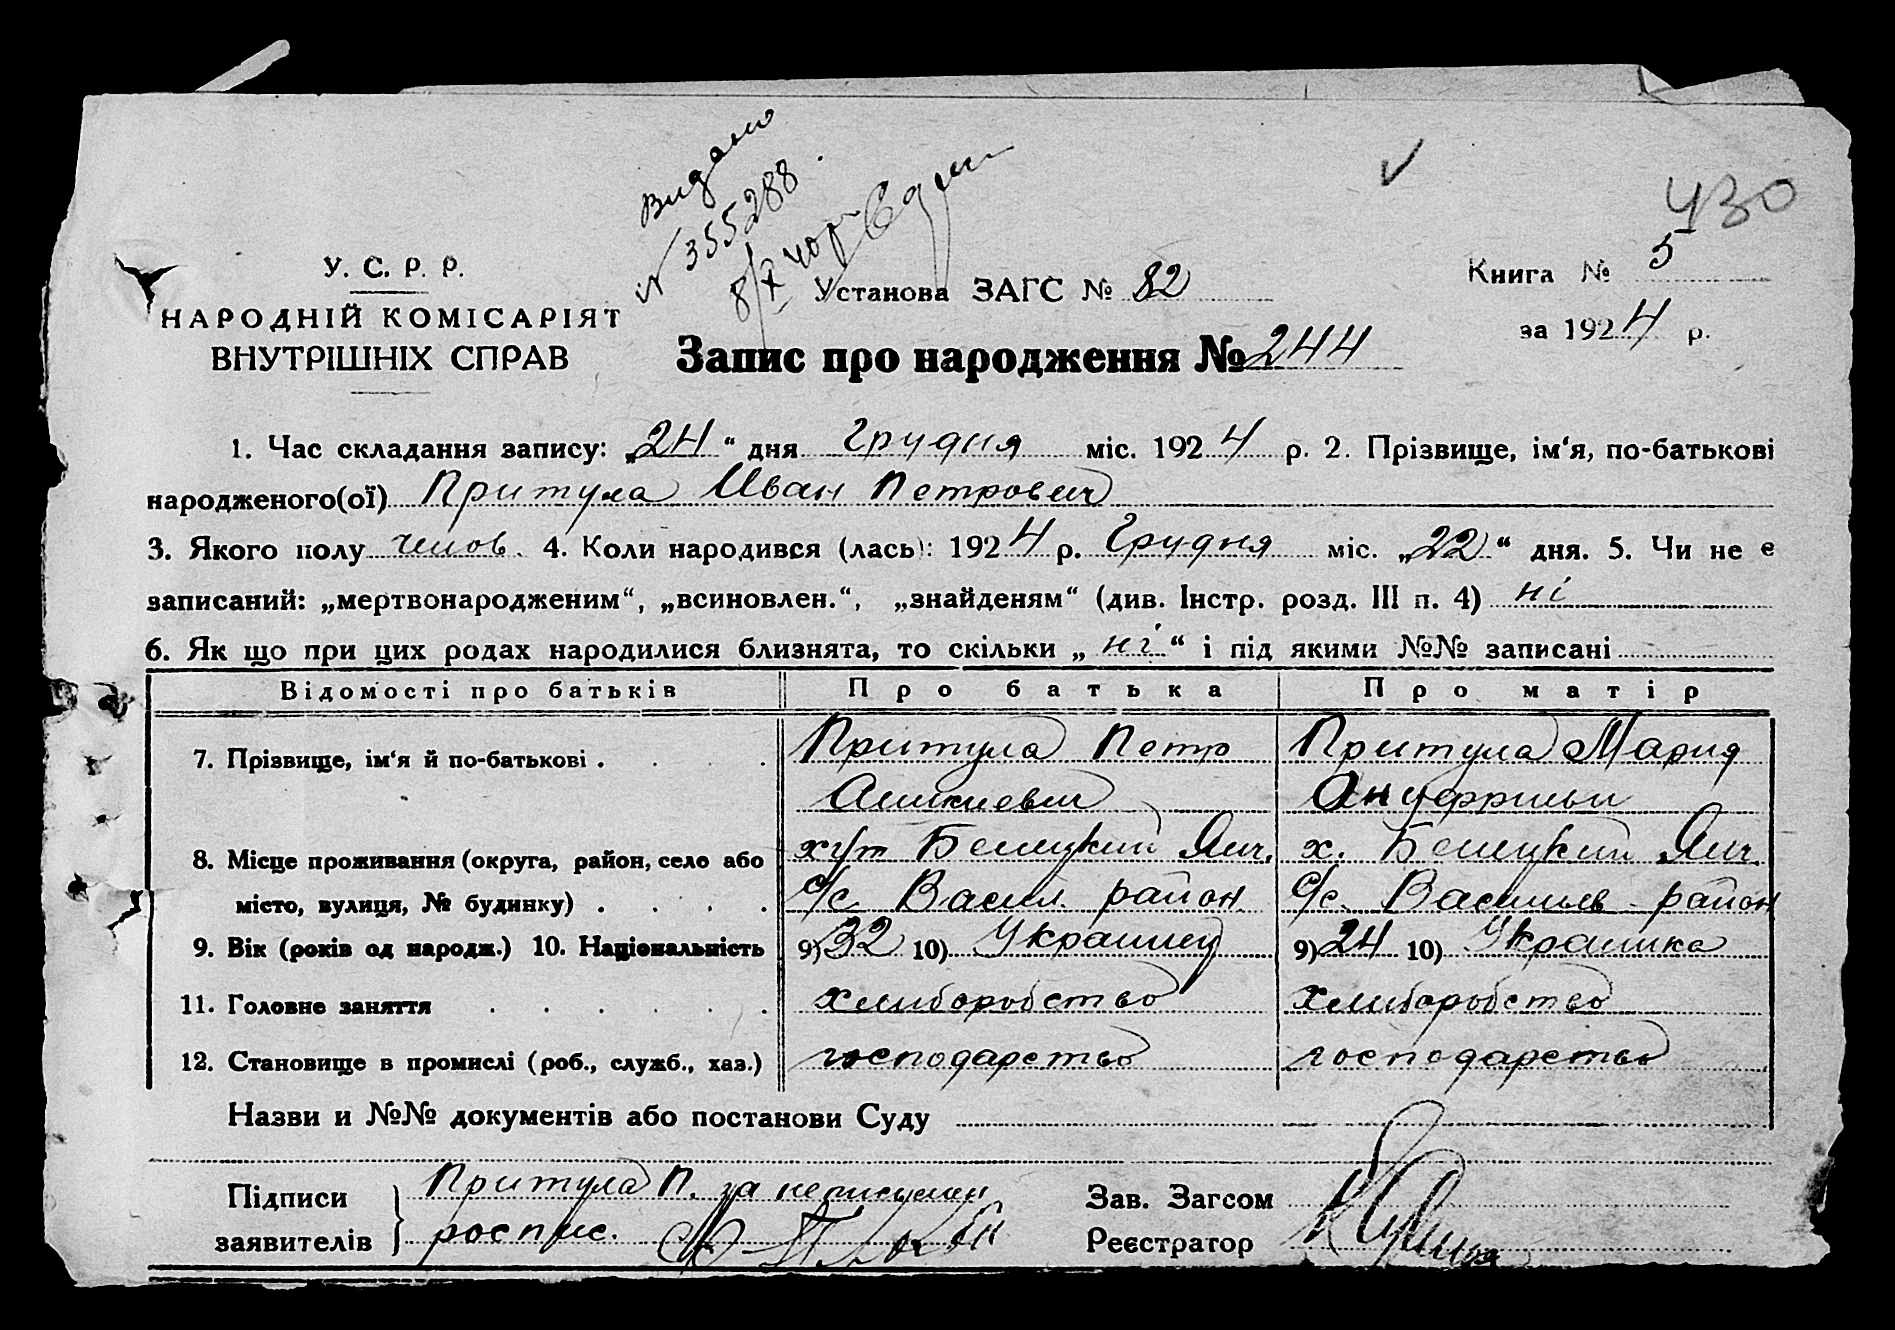 430
Видано
№ 355288.
8/X
У. С. Р. Р.
НАРОДНІЙ КОМІСАРІЯТ
ВНУТРІШНІХ СПРАВ
Установа ЗАГС № 82
Книга № 5
за 1924 р.
Запис про народження № 244
1. Час складання запису: „24“ дня Грудня міс. 1924 р. 2. Прізвище, ім‘я, по-батькові
народженого(ої) Притула Иван Петрович
3. Якого полу челов. 4. Коли народився (лась): 1924 р. Грудня міс. „22“ дня. 5. Чи не є
записаний: „мертвонародженим“, „всиновлен.“, „знайденям“ (див. Інстр. розд. III п. 4) ні
6. Як що при цих родах народилися близнята, то скільки „ні“ і під якими №№ записані
Відомості про батьків Про батька Про матір
7. Прізвище, ім‘я й по-батькові . . . . Притула Петр Притула Мария
8. Місце проживання (округа, район, село або хут Белецкий х. Белецкий
місто, вулиця, № будинку) . . . . с/с. Васил. район с/с. Васильев. район
9. Вік (років од народж.) 10. Національність 9) 32 10) Украинец 9) 24 10) Украинка
11. Головне заняття . . . . . . хлиборобство хлиборобство
12. Становище в промислі (роб., служб., хаз.) господарство господарство
Назви и №№ документів або постанови Суду
Підписи Притула П. за неписьмен Зав. Загсом
заявителів роспис. Реєстратор